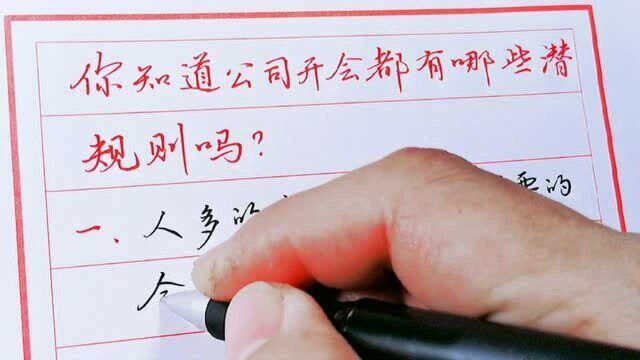 你知道公司开会都有哪些潜
规则吗?
一、人多的 要的